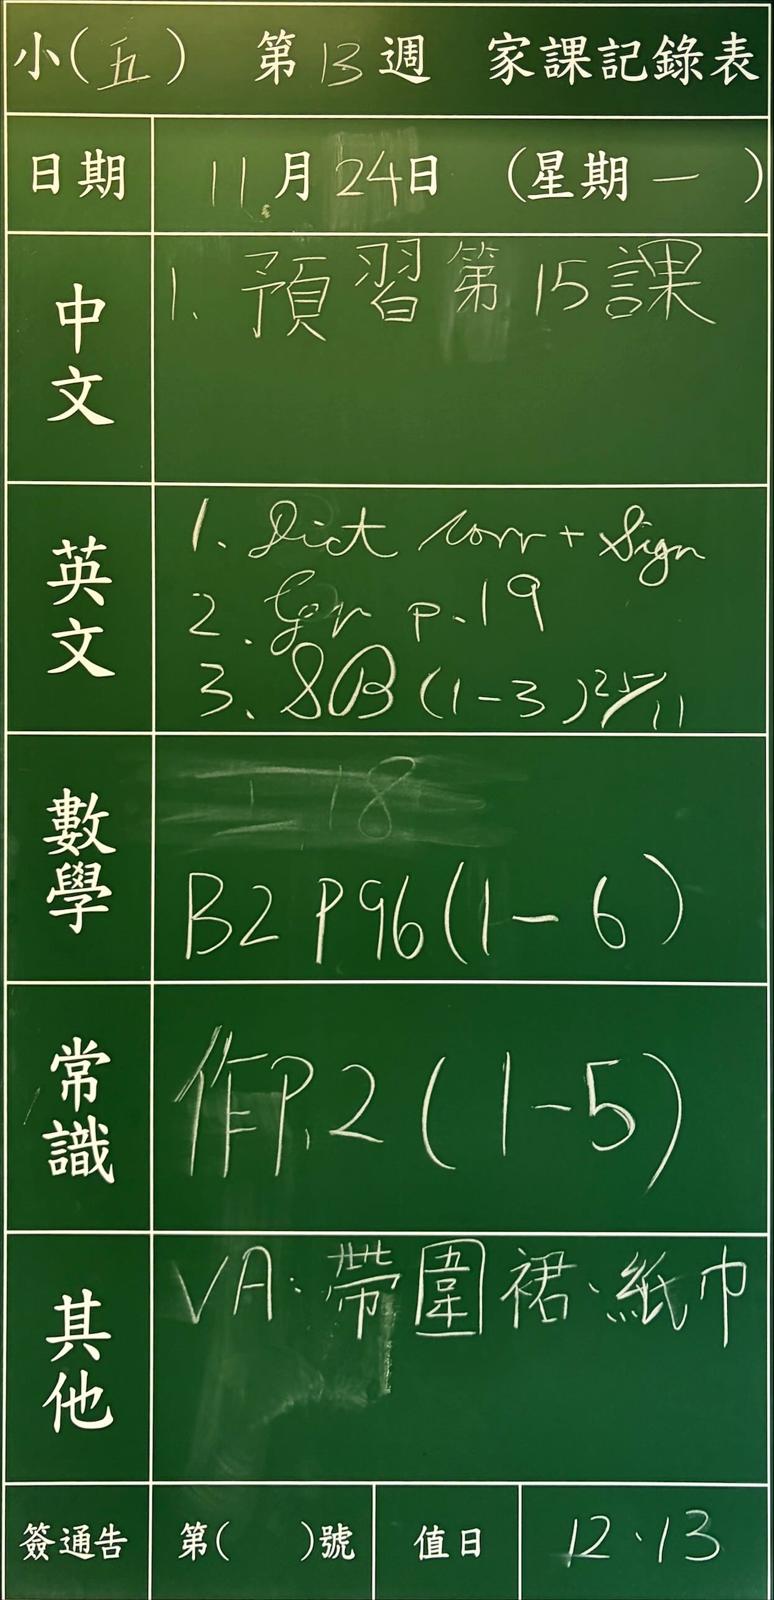 小(五) 第13週 家課記錄表
日期 11月24日 (星期一)
中文
1. 預習第15課
英文
1. Dict Corr + Sign
2. Gr p.19
3. SB (1-3) 25/11
數學
B2 P96(1-6)
常識
作P.2 (1-5)
其他
VA: 帶圍裙、紙巾
簽通告 第( )號 值日 12、13